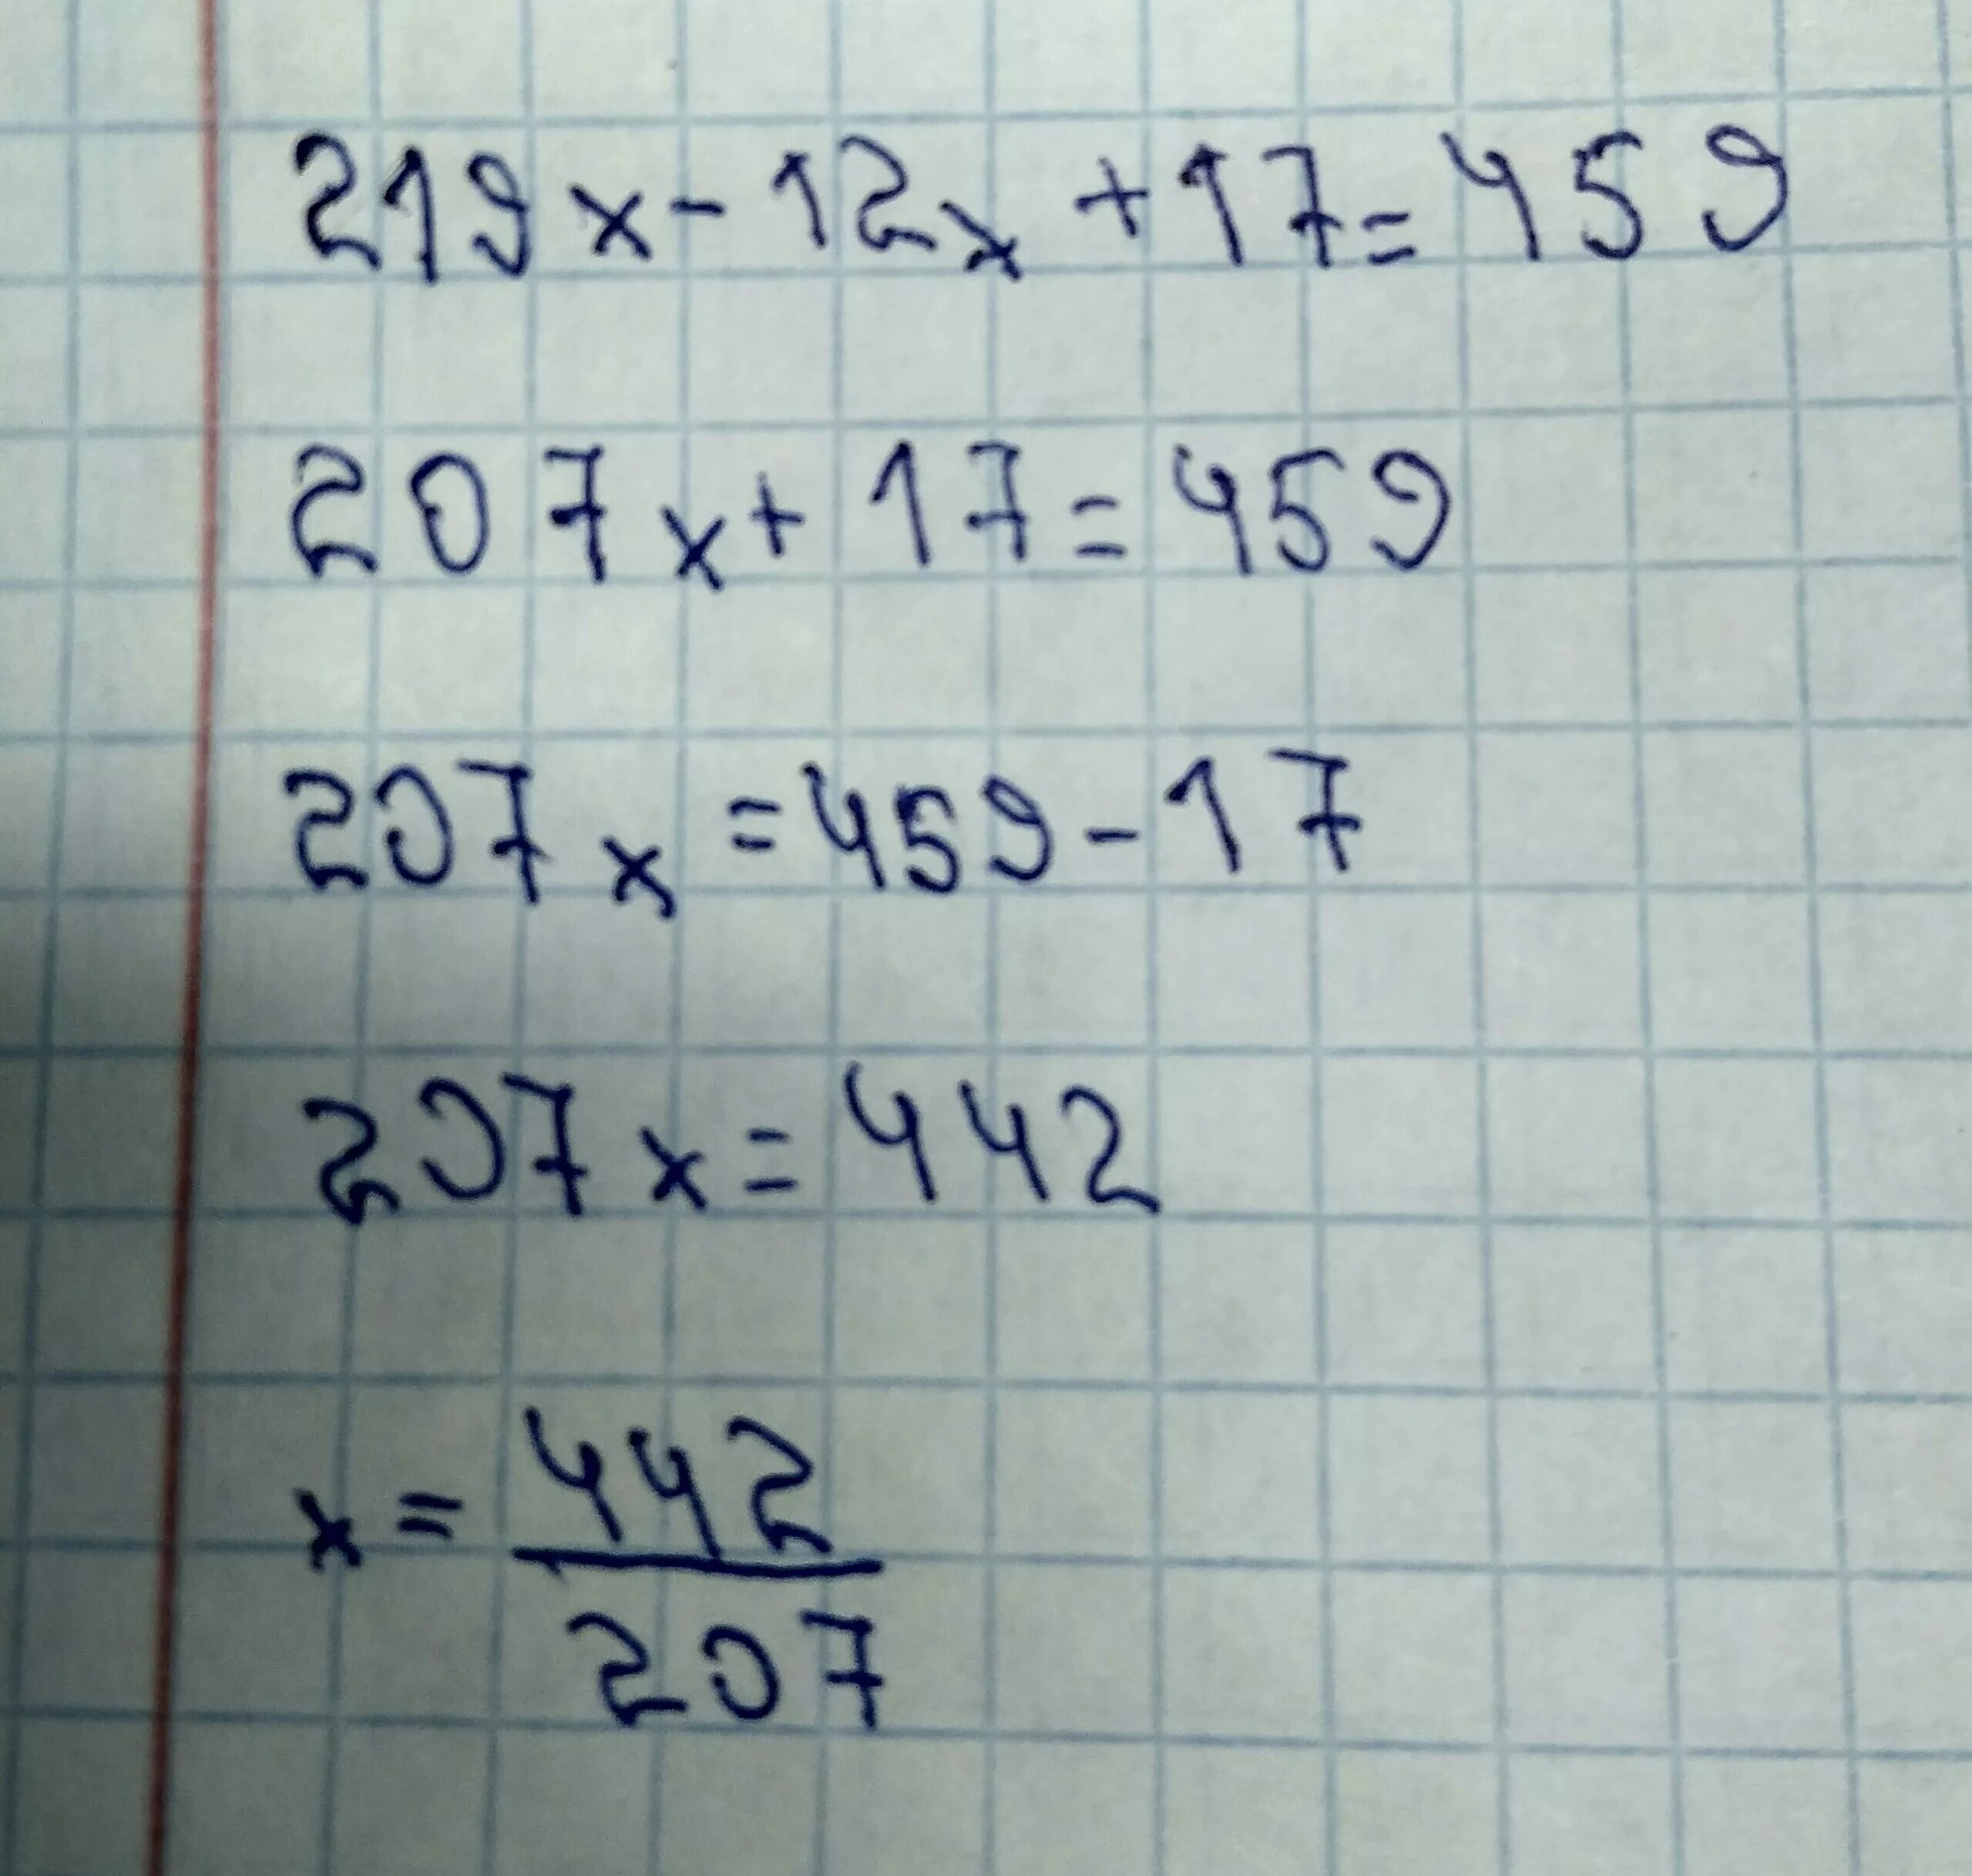 219x - 12x + 17 = 459
207x + 17 = 459
207x = 459 - 17
207x = 442
x = 442/207